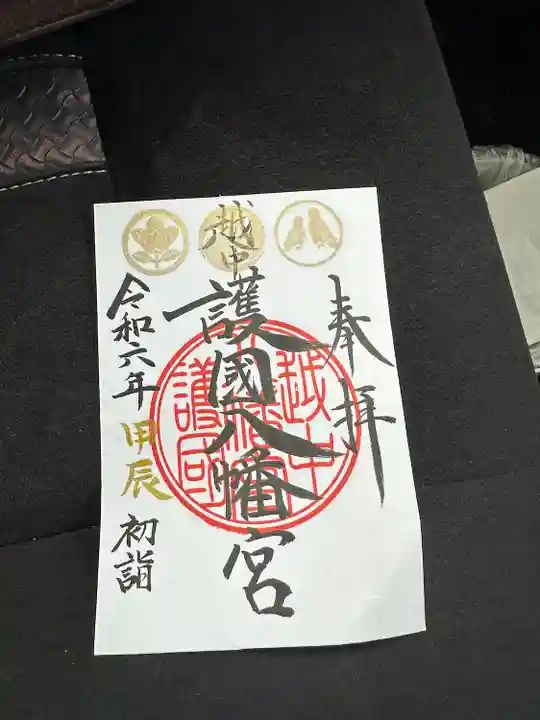 奉拝
越中
護國八幡宮
越中
八幡宮
護国
令和六年 甲辰 初詣